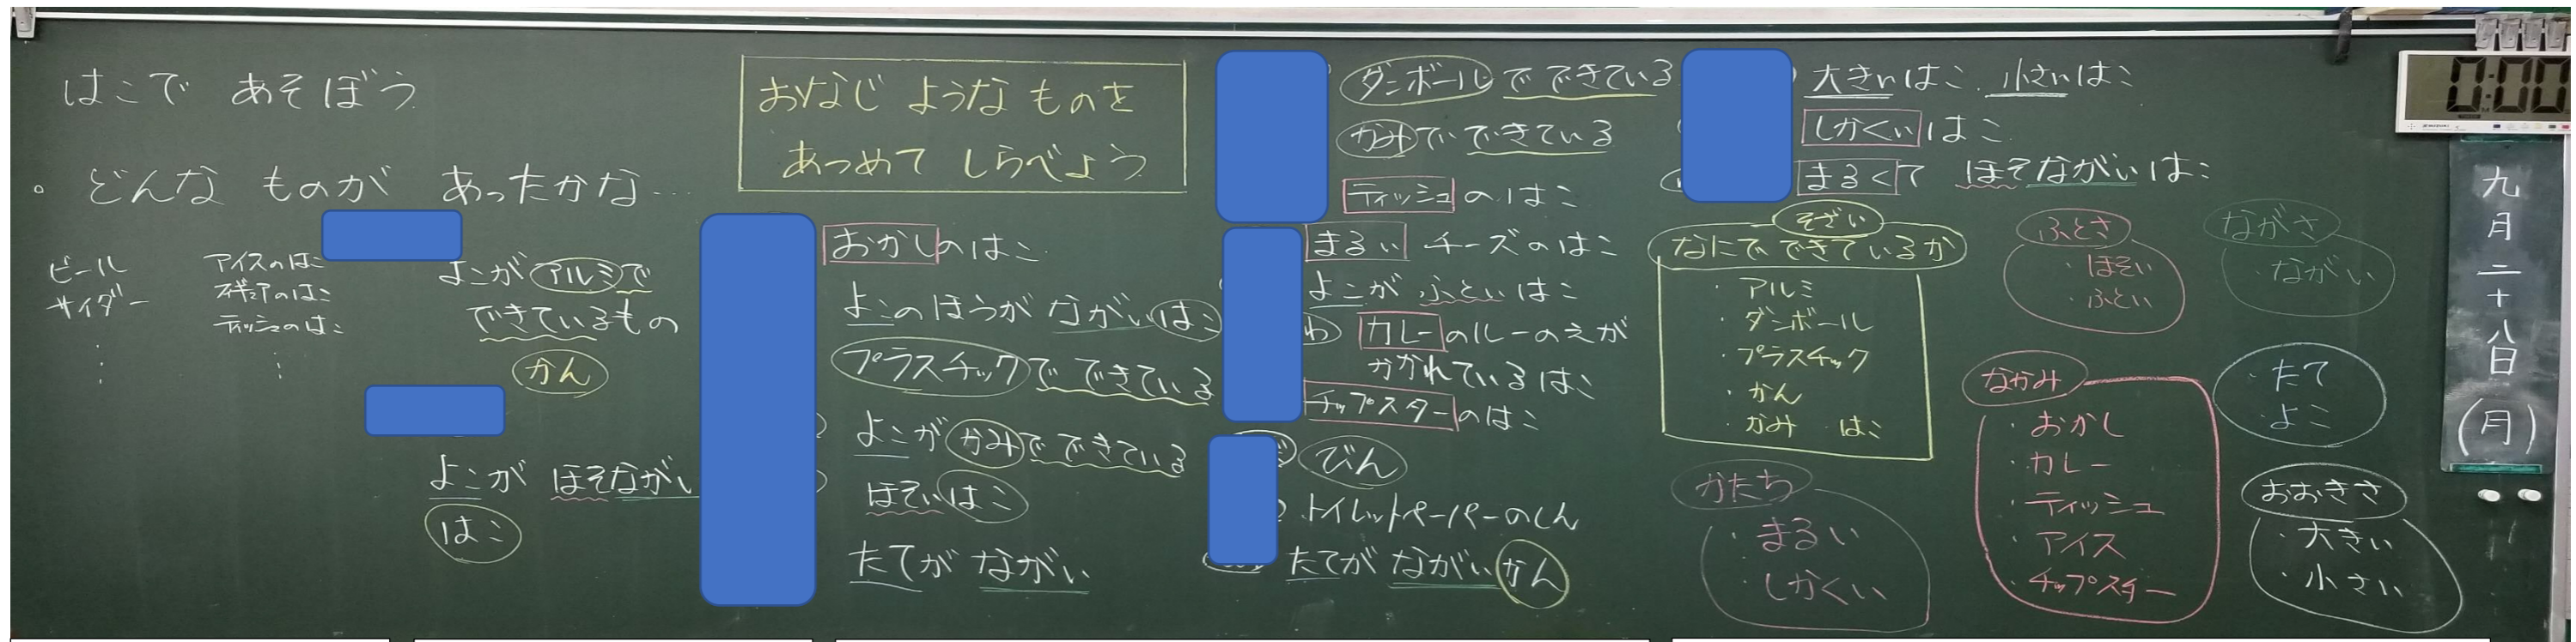 はこで あそぼう
。どんな ものが あったかな…
ビール
サイダー
アイスのはこ
フィギュアのはこ
ティッシュのはこ
よこが アルミで
できているもの
かん
よこが ほそながい
はこ
おなじ ような ものを
あつめて しらべよう
おかしのはこ
よこのほうが ながいはこ
プラスチックでできている
よこがかみでできている
ほそいはこ
たてが ながい
ダンボールでできている
かみでできている
ティッシュのはこ
まるい チーズのはこ
よこが ふといはこ
カレーのルーのえが
かかれているはこ
チップスターのはこ
びん
トイレットペーパーのしん
たてが ながいかん
大きいはこ 小さいはこ
しかくいはこ
まるくて ほそながいはこ
そざい
なにでできているか
・アルミ
・ダンボール
・プラスチック
・かん
・かみ はこ
かたち
・まるい
・しかくい
ふとさ
・ほそい
・ふとい
なかみ
・おかし
・カレー
・ティッシュ
・アイス
・チップスター
ながさ
・ながい
・たて
・よこ
おおきさ
・大きい
・小さい
0:00
九月二十八日(月)